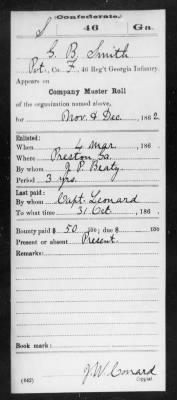 Confederate.
S 46 Ga.
G. B. Smith
Pvt., Co. F, 46 Reg't Georgia Infantry.
Appears on
Company Muster Roll
of the organization named above,
for Nov. & Dec., 1862
Enlisted:
When 4 Mar, 186 .
Where Preston Ga.
By whom J. P. Beaty
Period 3 yrs.
Last paid:
By whom Capt. Leonard
To what time 31 Oct, 186 .
Bounty paid $ 50 100; due $ 100
Present or absent Present.
Remarks:
Book mark:
J. W. Conard
(642) Copyist.